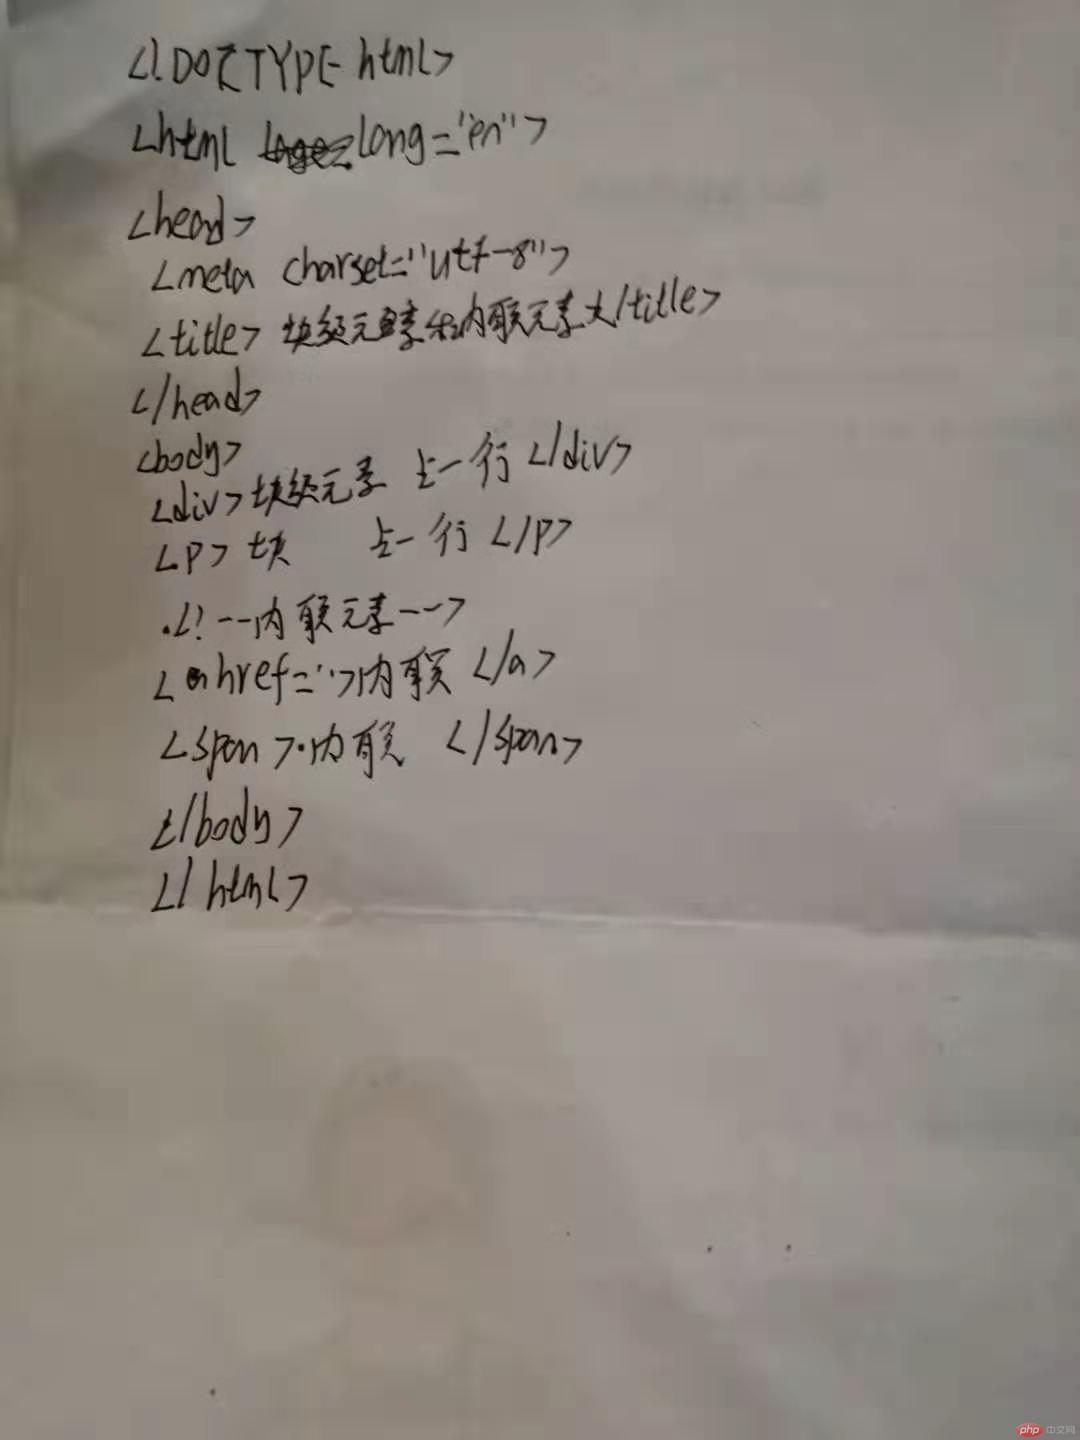 <!DOCTYPE html>
<html long="en">
<head>
<meta charset="utf-8">
<title>块级元素和内联元素</title>
</head>
<body>
<div>块级元素 占一行</div>
<p>块 占一行</p>
<!--内联元素-->
<a href=''>内联</a>
<span>内联</span>
</body>
</html>
php 中文网